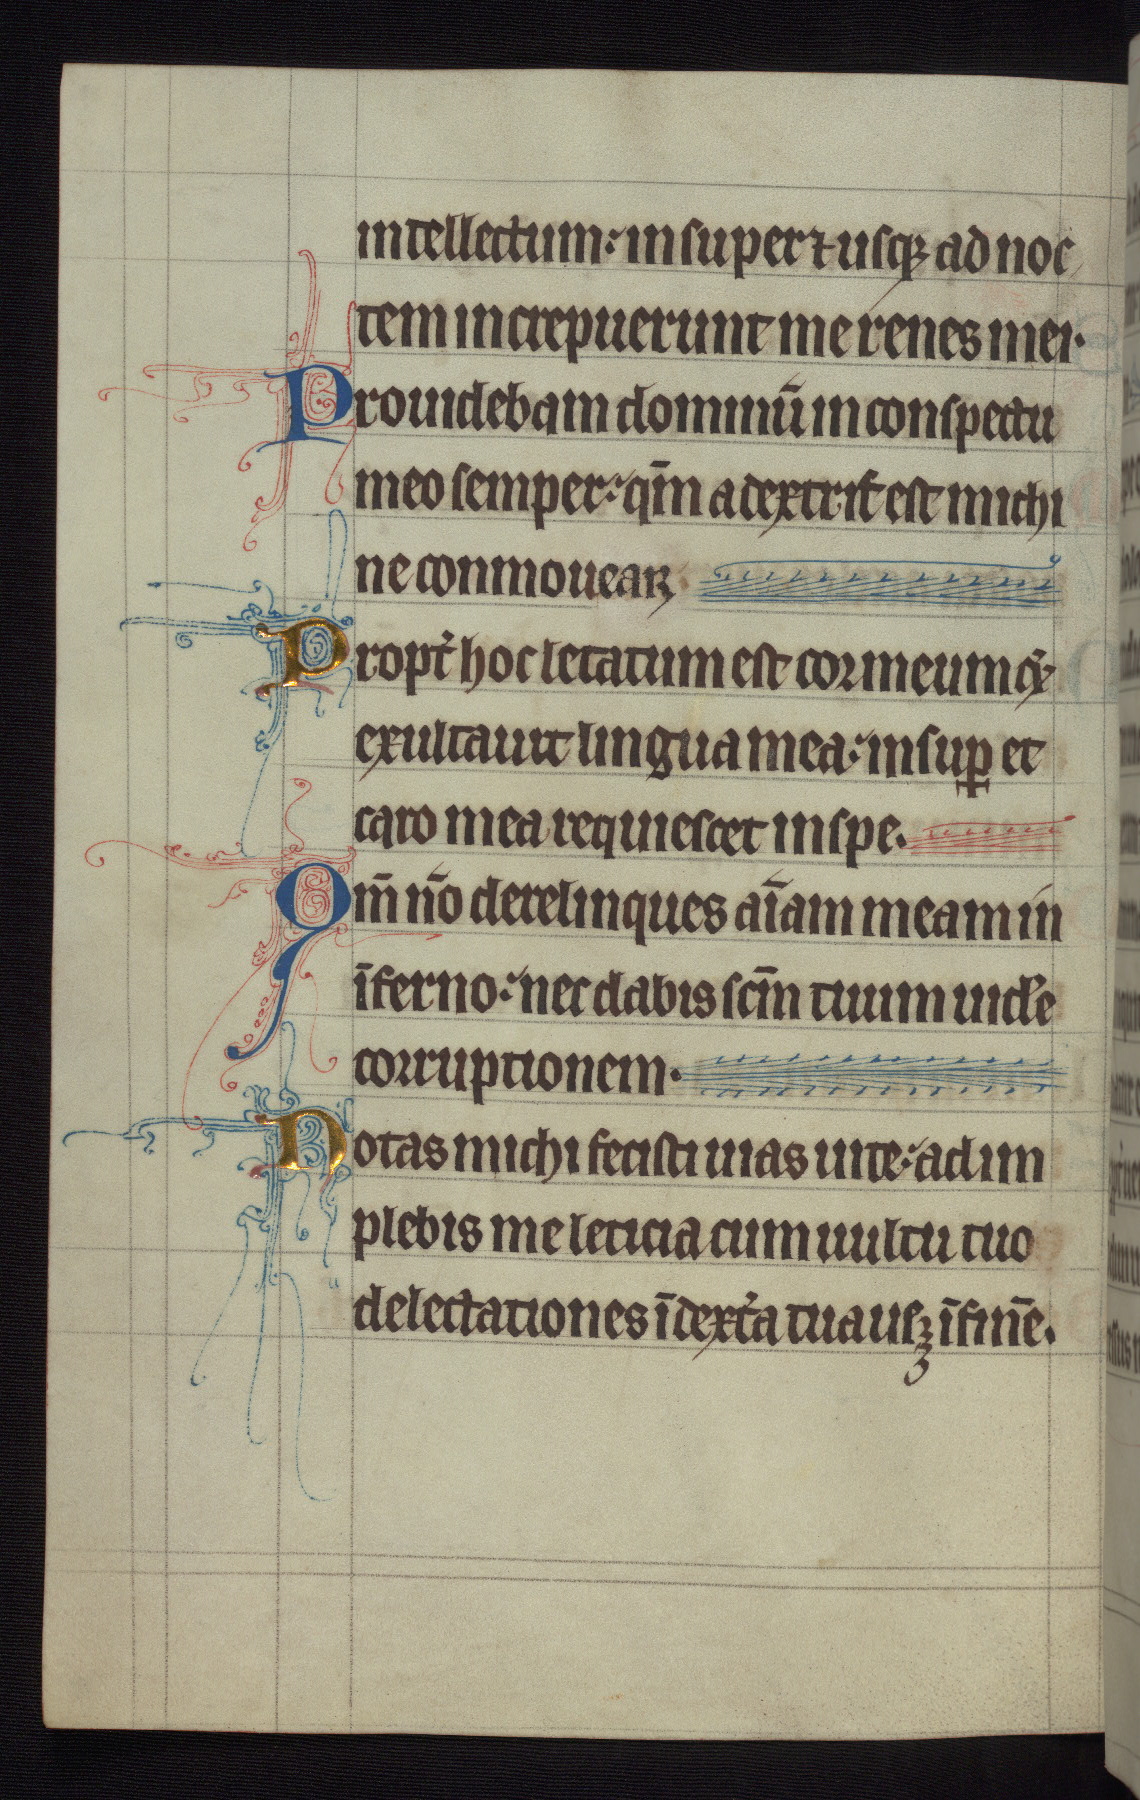 intellectum: insuper ⁊ usq; ad noc
tem increpuerunt me renes mei.
Prouidebam dominū in conspectu
meo semper: qm̄ a dextris est michi
ne conmouear.
Propt̓ hoc letatum est cor meum ⁊
exultauit lingua mea: insup̱ et
caro mea requiescet in spe.
Qm̄ nō derelinques aīam meam in
īferno: nec dabis scm̄ tuum uide
corruptionem.
Notas michi fecisti uias uite: adim
plebis me leticia cum uultu tuo
delectationes ī dext̓a tua usꝫ ī finē.